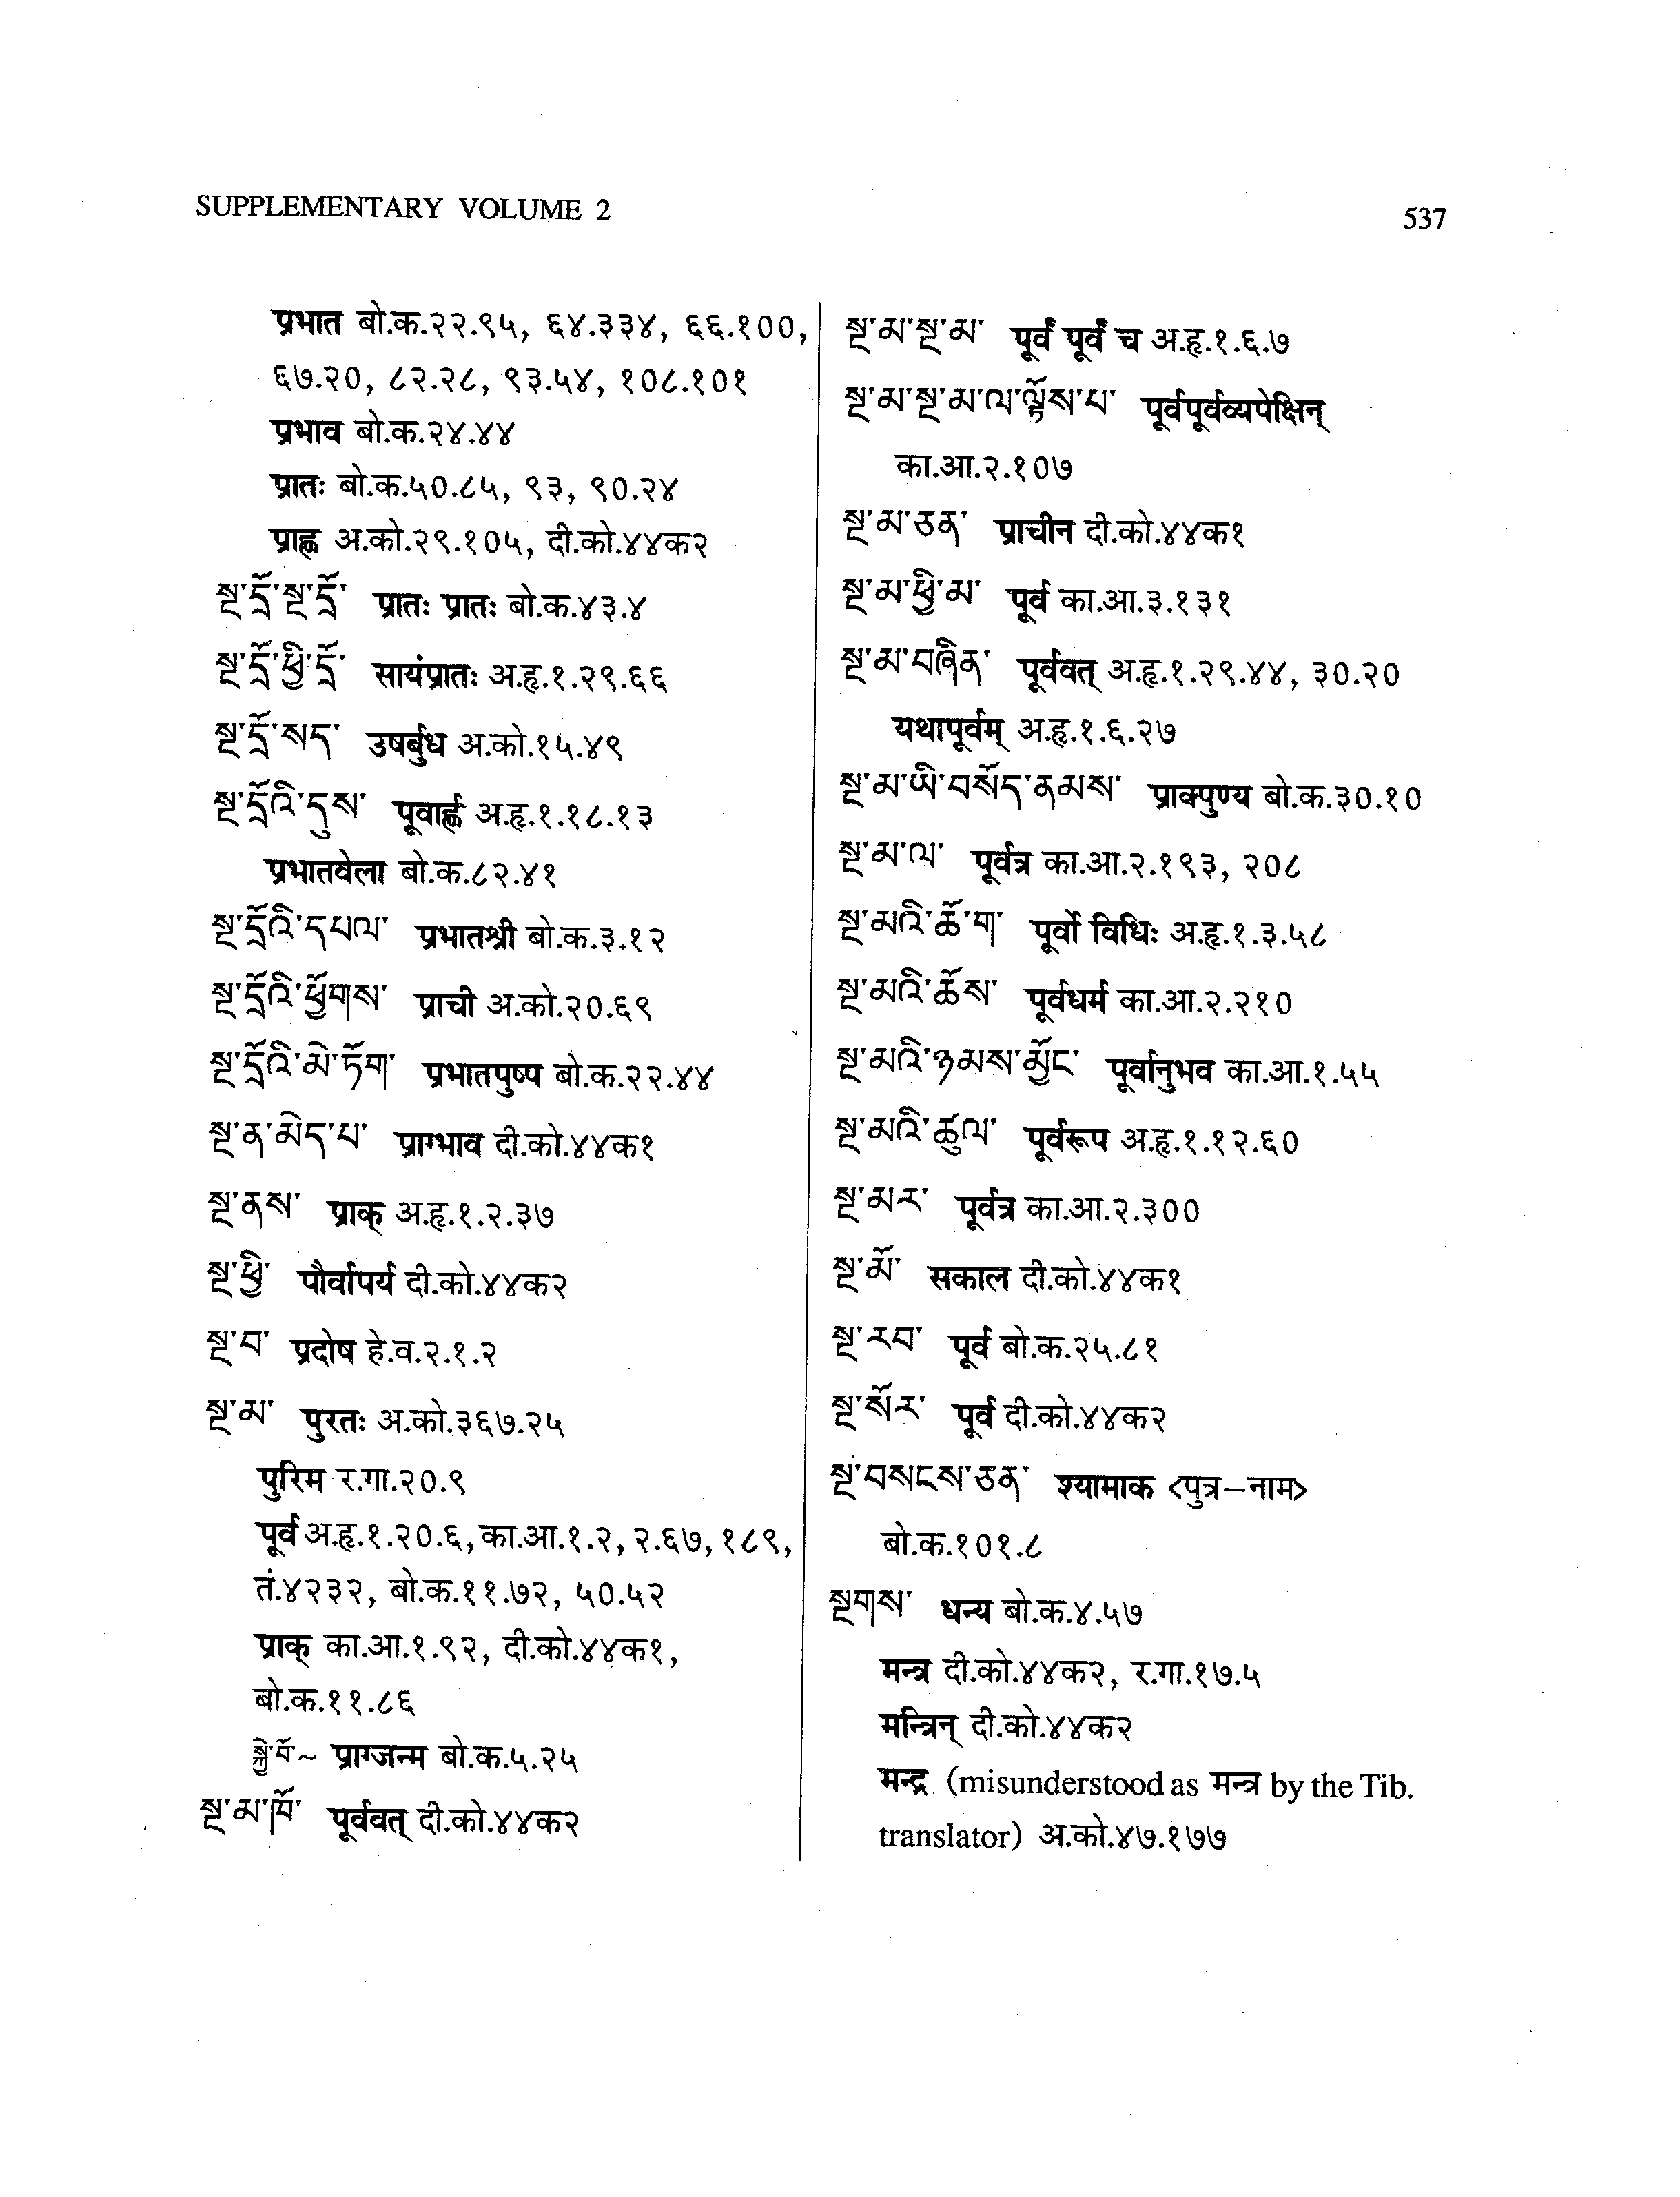 SUPPLEMENTARY VOLUME 2
537
प्रभात बो.क.२२.९५, ६४.३३४, ६६.१००,
६७.२०, ८२.२८, ९३.५४, १०८.१०१
प्रभाव बो.क.२४.४४
प्रातः बो.क.५०.८५, ९३, ९०.२४
प्राह्ण अ.को.२९.१०५, दी.को.४४क२
སྔ་དྲོ་སྔ་དྲོ་ प्रातः प्रातः बो.क.४३.४
སྔ་དྲོ་ཕྱི་དྲོ་ सायंप्रातः अ.हृ.१.२९.६६
སྔ་དྲོ་སད་ उषर्बुध अ.को.१५.४९
སྔ་དྲོའི་དུས་ पूवार्ह्ण अ.हृ.१.१८.१३
प्रभातवेला बो.क.८२.४१
སྔ་དྲོའི་དཔལ་ प्रभातश्री बो.क.३.१२
སྔ་དྲོའི་ཕྱོགས་ प्राची अ.को.२०.६९
སྔ་དྲོའི་མེ་ཏོག་ प्रभातपुष्प बो.क.२२.४४
སྔ་ན་མེད་པ་ प्राग्भाव दी.को.४४क१
སྔ་ནས་ प्राक् अ.हृ.१.२.३७
སྔ་ཕྱི་ पौर्वापर्य दी.को.४४क२
སྔ་བ་ प्रदोष हे.व.२.१.२
སྔ་མ་ पुरतः अ.को.३६७.२५
पुरिम र.गा.२०.९
पूर्व अ.हृ.१.२०.६, का.आ.१.२, २.६७, १८९,
तं.४२३२, बो.क.११.७२, ५०.५२
प्राक् का.आ.१.९२, दी.को.४४क१,
बो.क.११.८६
སྐྱེ་བོ་~ प्राग्जन्म बो.क.५.२५
སྔ་མ་ཁོ་ पूर्ववत् दी.को.४४क२
སྔ་མ་སྔ་མ་ पूर्वं पूर्वं च अ.हृ.१.६.७
སྔ་མ་སྔ་མ་ལ་ལྟོས་པ་ पूर्वपूर्वव्यपेक्षिन्
का.आ.२.१०७
སྔ་མ་ཅན་ प्राचीन दी.को.४४क१
སྔ་མ་ཕྱི་མ་ पूर्व का.आ.३.१३१
སྔ་མ་བཞིན་ पूर्ववत् अ.हृ.१.२९.४४, ३०.२०
यथापूर्वम् अ.हृ.१.६.२७
སྔ་མ་ཡི་བསོད་ནམས་ प्राक्पुण्य बो.क.३०.१०
སྔ་མ་ལ་ पूर्वत्र का.आ.२.१९३, २०८
སྔ་མའི་ཆོ་ག་ पूर्वो विधिः अ.हृ.१.३.५८
སྔ་མའི་ཆོས་ पूर्वधर्म का.आ.२.२१०
སྔ་མའི་ཉམས་མྱོང་ पूर्वानुभव का.आ.१.५५
སྔ་མའི་ཚུལ་ पूर्वरूप अ.हृ.१.१२.६०
སྔ་མར་ पूर्वत्र का.आ.२.३००
སྔ་མོ་ सकाल दी.को.४४क१
སྔ་རབ་ पूर्व बो.क.२५.८१
སྔ་སོར་ पूर्व दी.को.४४क२
སྔ་བསངས་ཅན་ श्यामाक <पुत्र–नाम>
बो.क.१०१.८
སྔགས་ धन्य बो.क.४.५७
मन्त्र दी.को.४४क२, र.गा.१७.५
मन्त्रिन् दी.को.४४क२
मन्द्र (misunderstood as मन्त्र by the Tib.
translator) अ.को.४७.१७७